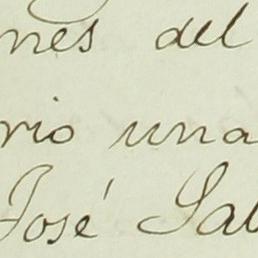 nes del
rio una
José Sal